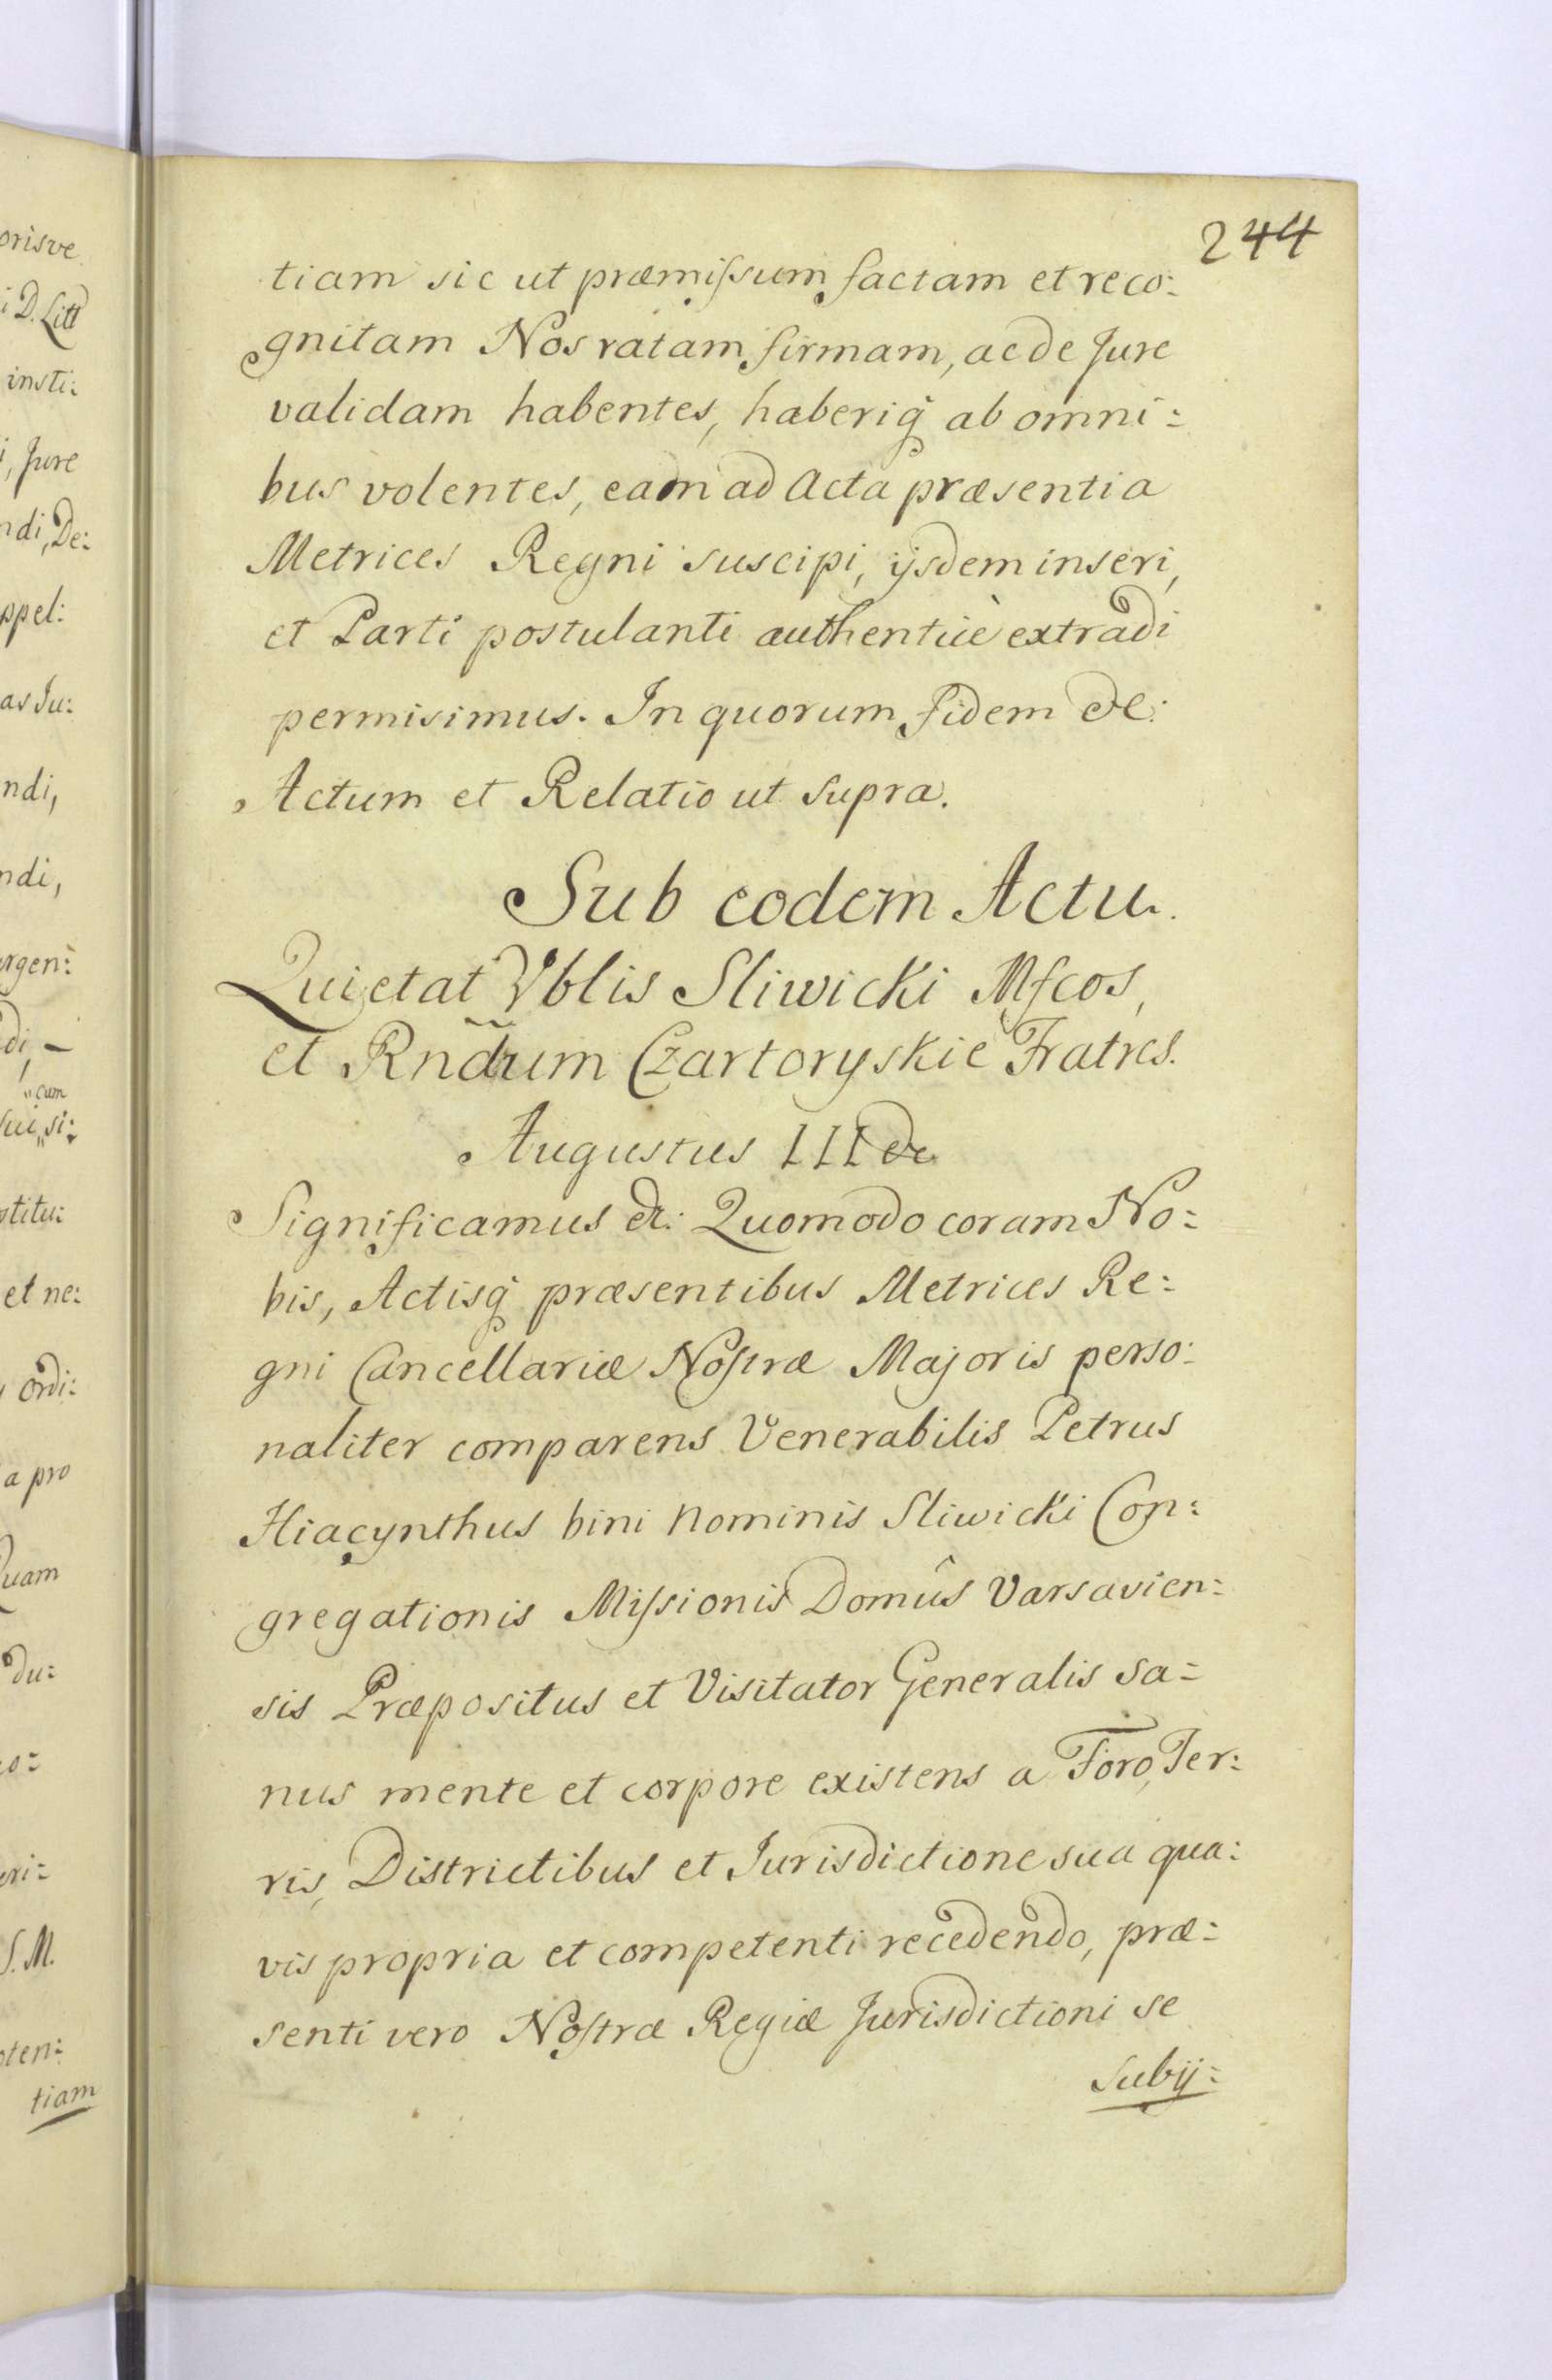 244
tiam sic ut præmissum factam et reco:
gnitam Nos ratam, firmam, ac de Jure
validam habentes, haberiq́ ab omni:
bus volentes, eam ad Acta præsentia
Metrices Regni suscipi, ijsdem inseri,
et Parti postulanti authenticè extradi
permisimus. In quorum fidem &c:
Actum et Relatio ut supra.
Sub eodem Actu.
Quietat Vblis Sliwicki Mfcos,
et Rndum Czartoryskie Fratres.
Augustus III &c
Significamus &c: Quomodo coram No:
bis, Actisq́ præsentibus Metrices Re:
gni Cancellariæ Nostræ Majoris perso:
naliter comparens Venerabilis Petrus
Hiacynthus bini Nominis Sliwicki Con:
gregationis Missionis Domûs Varsavien:
sis Præpositus et Visitator Generalis sa:
nus mente et corpore existens a Foro, Ter:
ris, Districtibus et Jurisdictione sua qua:
vis propria et competenti recedendo, præ:
senti vero Nostræ Regiæ Jurisdictioni se
subij:
orisve
i D. Litt
insti:
i, Jure
ndi, De:
ppel:
as Ju:
ndi,
ndi,
rgen:
di, –
cum
sui si:
stitu:
et ne:
ordi:
a pro
Quam
du:
co:
eri:
S. M.
oten:
tiam